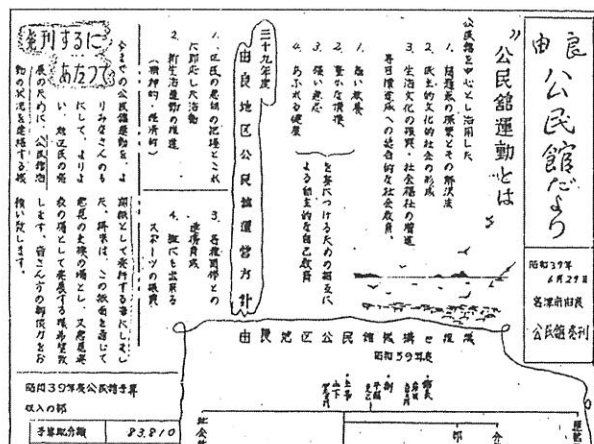 由良
公民館だより
昭和39年
6月29日
宮津市由良
公民館発刊
"公民館運動とは
公民館を中心とし活用した
1. 問題点の発見とその解決法
2. 民主的文化的社会の形成
3. 生活文化の振興・社会福祉の増進
1. 高い教養
2. 豊かな情操
3. 強い意志
4. あふれる健康
を身につけるための相互に
よる自主的な自己教育
三十九年度
由良地区公民館運営方針
1. 区民の要望の把握とそれ
に即応した活動
2. 新生活運動の推進
(精神的・経済的)
3. 各種団体との
連携育成
4. 誰にも出来る
スポーツの振興
発刊するに
あたって
今までの公民館運動を、よ
りみなさんのも
のにして、よりよ
い、地区民の発
展のために、公民館活
動の状況を連絡する機
関紙として発行する事にしまし
た。将来は、この紙面を通じて
意見の交換の場とし、又意見発
表の場として発展する様希望致
します。皆さん方の御協力をお
願い致します。
由良地区公民館機構と組織
昭和39年度
昭和39年度公民館予算
収入の部
市費配分額 83,810